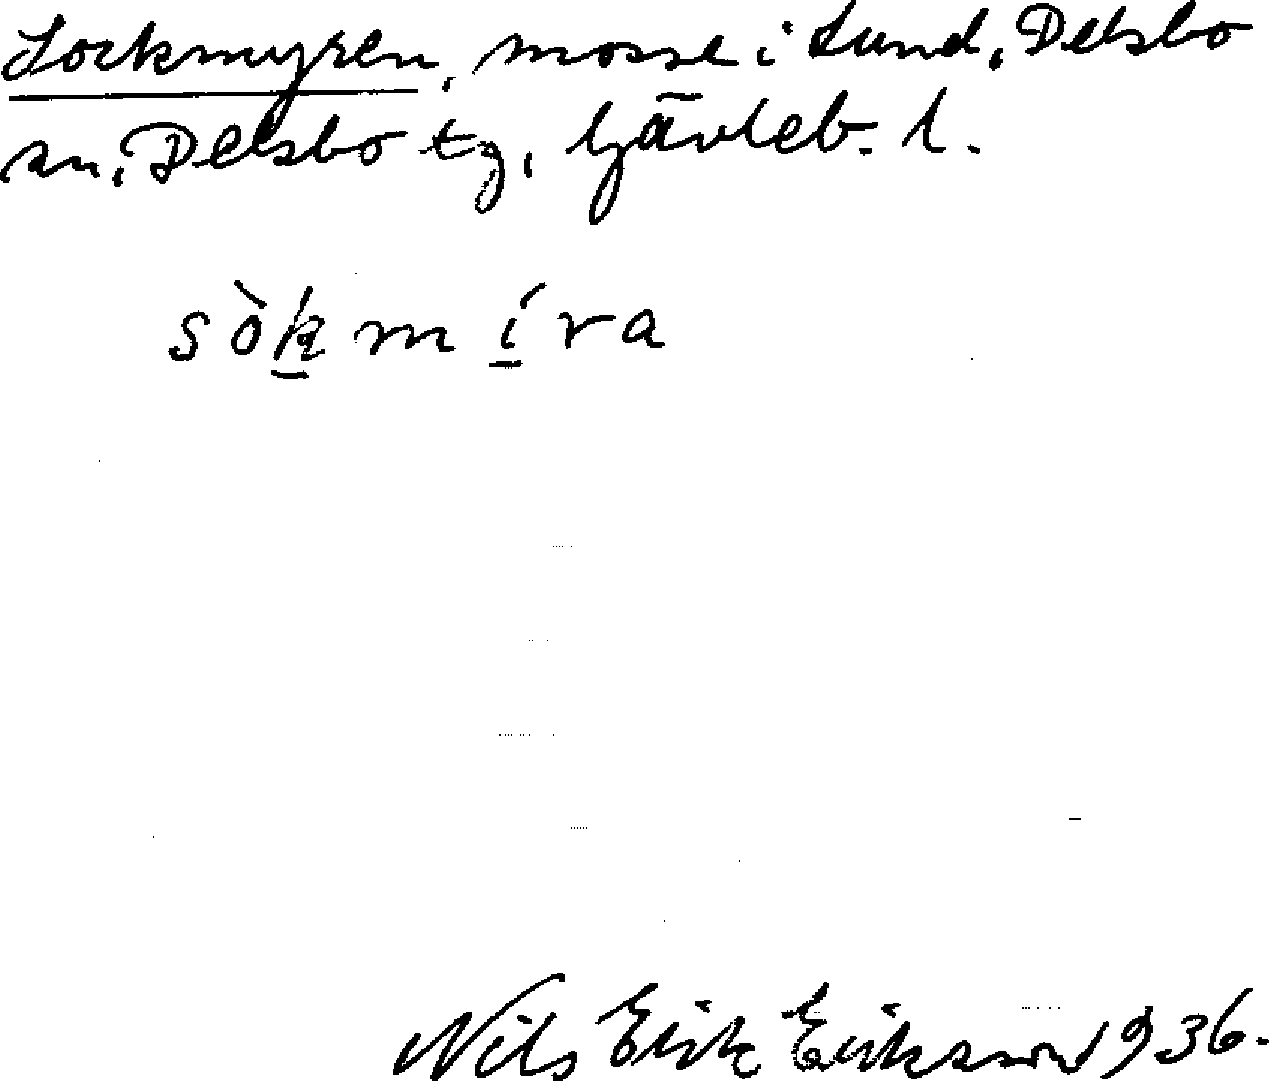 Sockmyren, mosse i Sund, Delsbo
sn, Delsbo tg, Gävleb. l.
sòk̲mí̲ra
Nils Erik Eriksson 1936.